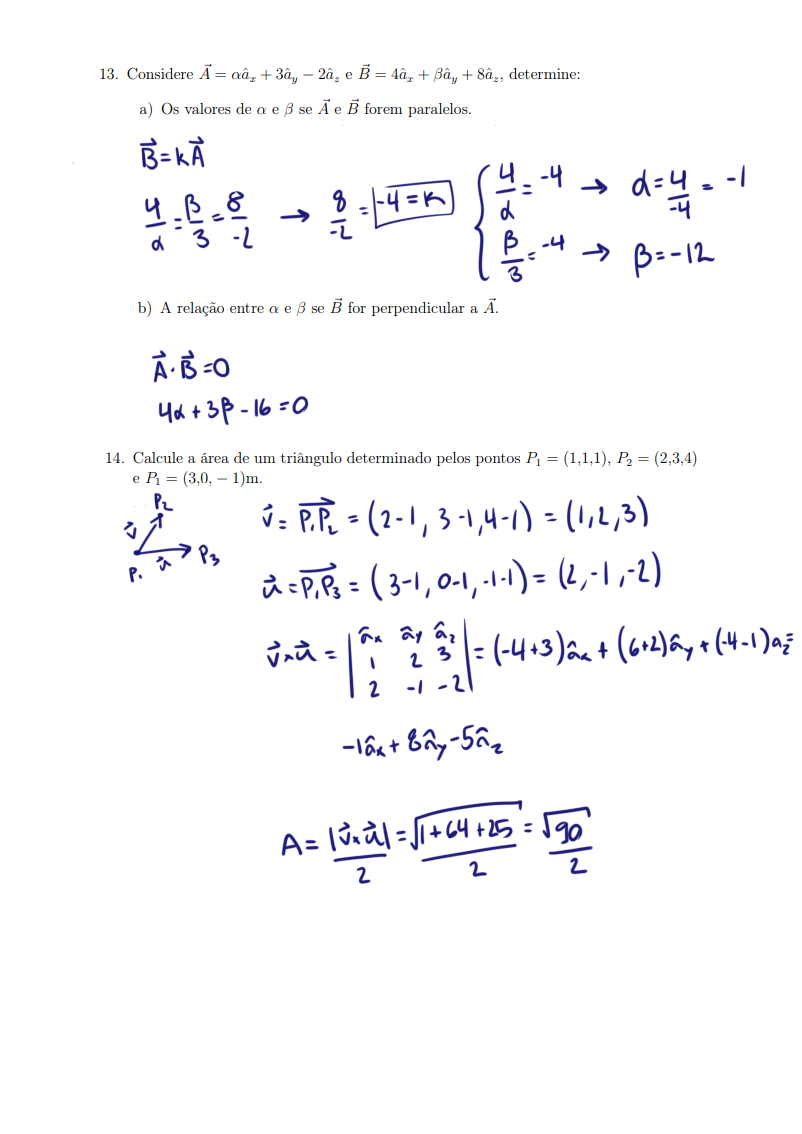 13. Considere $\vec{A} = \alpha\hat{a}_x + 3\hat{a}_y - 2\hat{a}_z$ e $\vec{B} = 4\hat{a}_x + \beta\hat{a}_y + 8\hat{a}_z$, determine:
a) Os valores de α e β se $\vec{A}$ e $\vec{B}$ forem paralelos.
$\vec{B} = k\vec{A}$
$\frac{4}{\alpha} = \frac{\beta}{3} = \frac{8}{-2} \rightarrow \frac{8}{-2} = \boxed{-4 = k}$
$\frac{4}{\alpha} = -4 \rightarrow \alpha = \frac{4}{-4} = -1$
$\frac{\beta}{3} = -4 \rightarrow \beta = -12$
b) A relação entre α e β se $\vec{B}$ for perpendicular a $\vec{A}$.
$\vec{A} \cdot \vec{B} = 0$
$4\alpha + 3\beta - 16 = 0$
14. Calcule a área de um triângulo determinado pelos pontos $P_1 = (1,1,1)$, $P_2 = (2,3,4)$
e $P_1 = (3,0,-1)$m.
$P_2$
$\vec{v}$
$P_1$ $\vec{u}$ $P_3$
$\vec{v} = \overrightarrow{P_1P_2} = (2-1, 3-1, 4-1) = (1,2,3)$
$\vec{u} = \overrightarrow{P_1P_3} = (3-1, 0-1, -1-1) = (2,-1,-2)$
$\vec{v} \times \vec{u} = \begin{vmatrix} \hat{a}_x & \hat{a}_y & \hat{a}_z \\ 1 & 2 & 3 \\ 2 & -1 & -2 \end{vmatrix} = (-4+3)\hat{a}_x + (6+2)\hat{a}_y + (-4-1)a_z =$
$-1\hat{a}_x + 8\hat{a}_y - 5\hat{a}_z$
$A = \frac{|\vec{v} \times \vec{u}|}{2} = \frac{\sqrt{1+64+25}}{2} = \frac{\sqrt{90}}{2}$